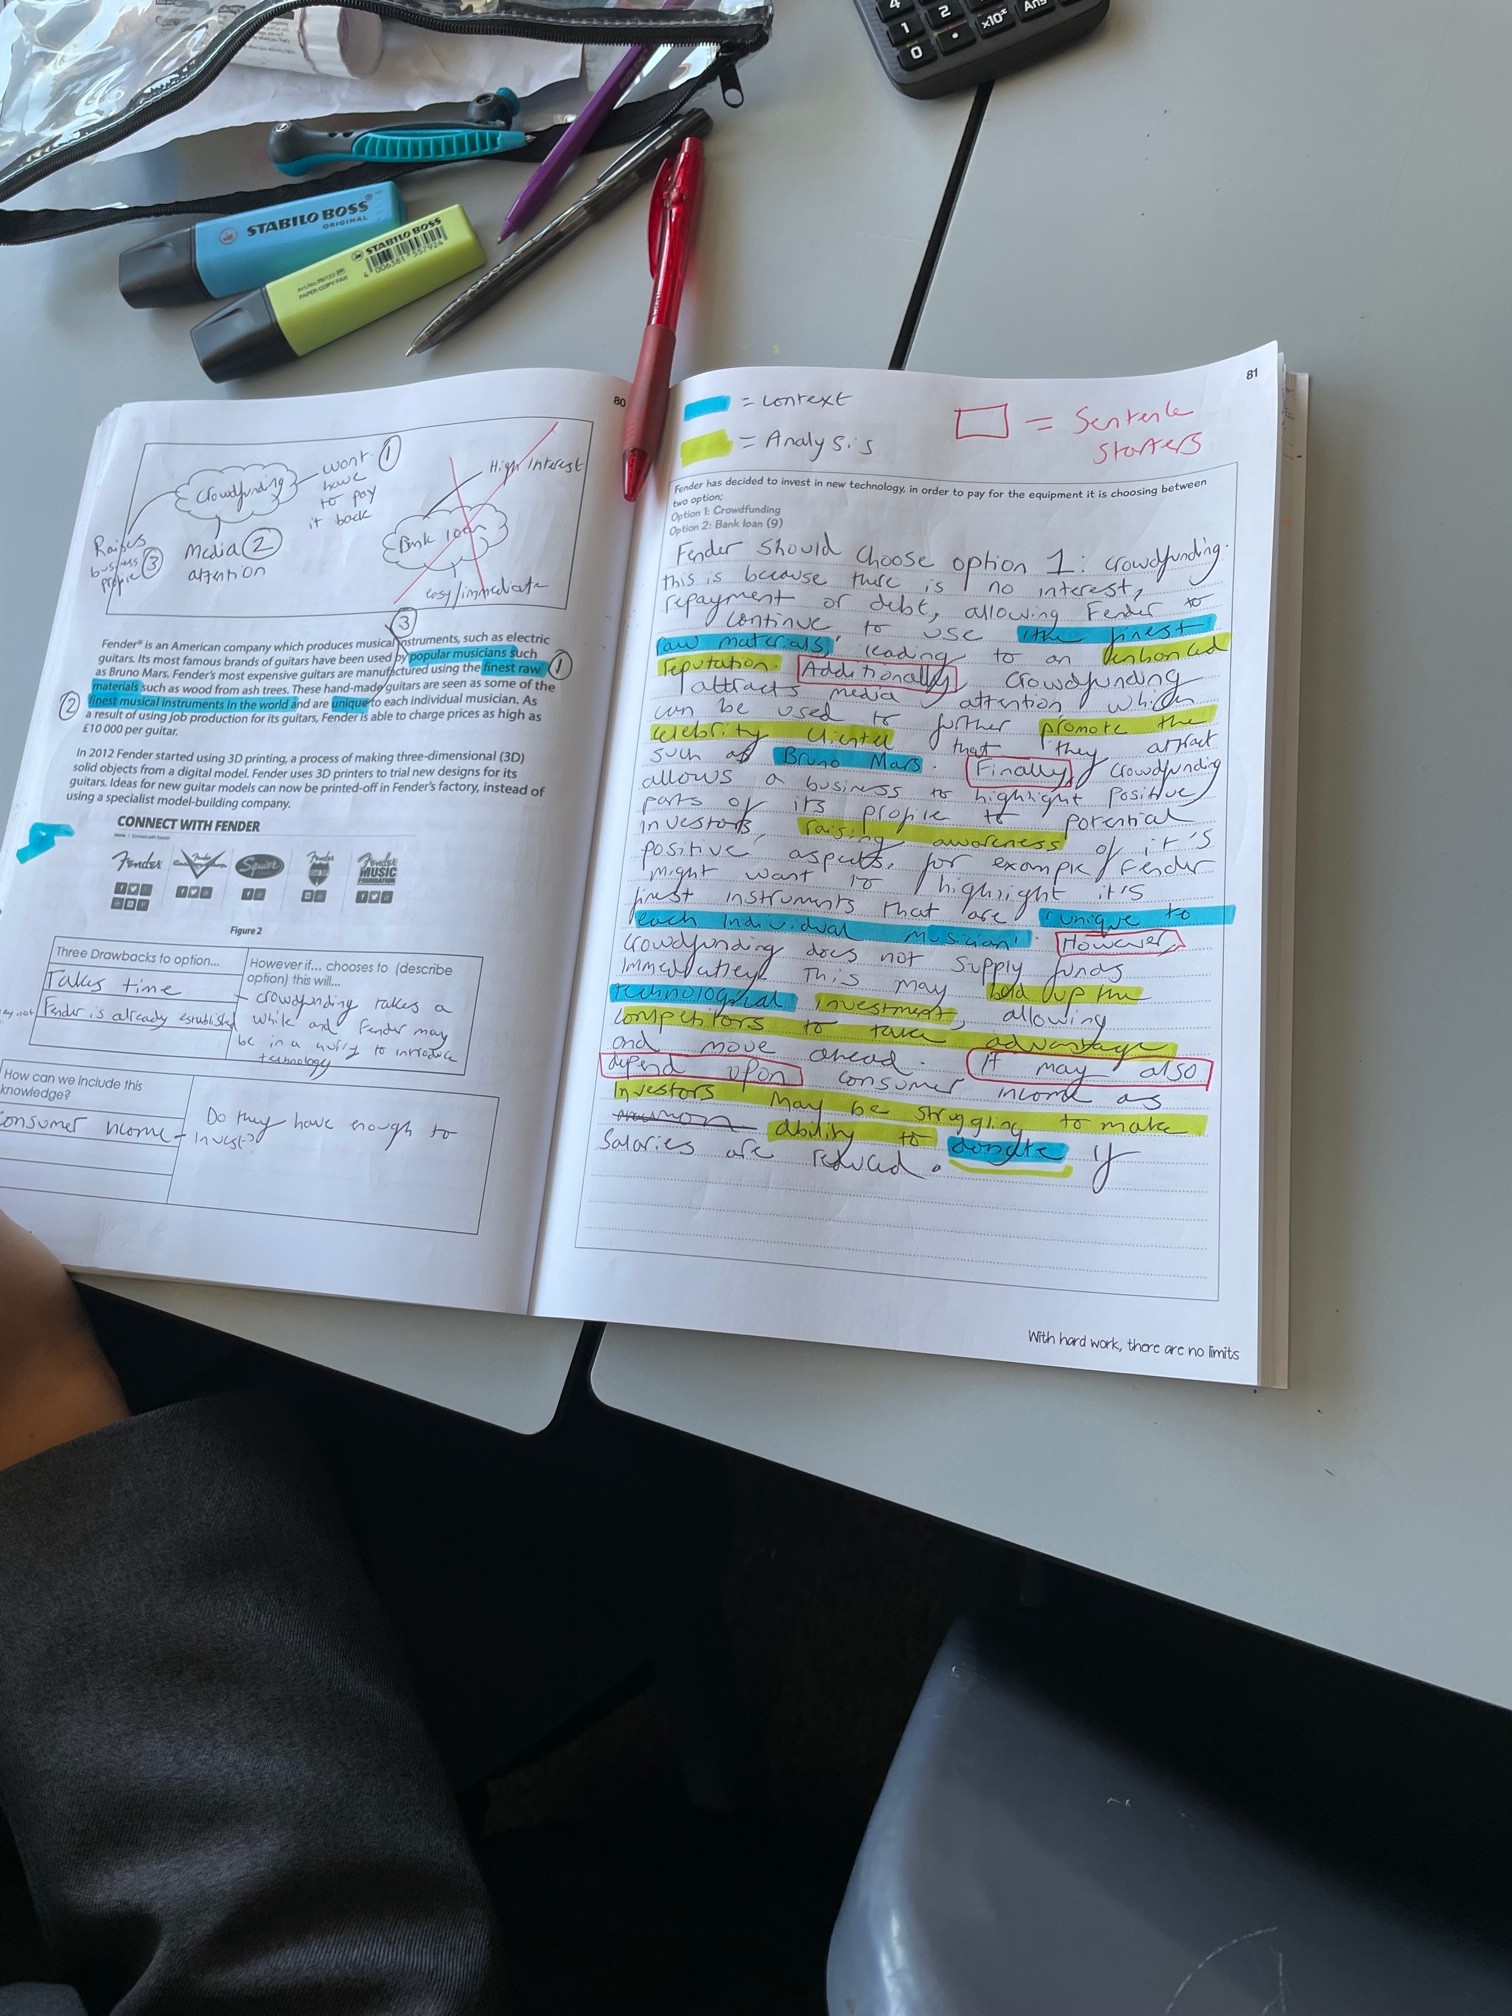 STABILO BOSS
ORIGINAL
STABILO BOSS
PAPER-COPY-FAX
4 006381 557924
4
1
2
0
x10ˣ
Ans
80
Crowdfunding
wont
have
to pay
it back
1
Raises
business
profile
3
Media
attention
2
High interest
Bank loan
easy/immediate
3
Fender® is an American company which produces musical instruments, such as electric
guitars. Its most famous brands of guitars have been used by popular musicians such
as Bruno Mars. Fender's most expensive guitars are manufactured using the finest raw
materials such as wood from ash trees. These hand-made guitars are seen as some of the
finest musical instruments in the world and are unique to each individual musician. As
a result of using job production for its guitars, Fender is able to charge prices as high as
£10 000 per guitar.
1
2
In 2012 Fender started using 3D printing, a process of making three-dimensional (3D)
solid objects from a digital model. Fender uses 3D printers to trial new designs for its
guitars. Ideas for new guitar models can now be printed-off in Fender's factory, instead of
using a specialist model-building company.
CONNECT WITH FENDER
Fender
Squier
Fender
MUSIC
FOUNDATION
Figure 2
Three Drawbacks to option...
Takes time
Fender is already established
However if... chooses to (describe
option) this will...
- crowdfunding takes a
while and Fender may
be in a hurry to introduce
technology
How can we include this
knowledge?
Consumer income
Do they have enough to
invest?
81
= context
= Analysis
= Sentence
starters
Fender has decided to invest in new technology, in order to pay for the equipment it is choosing between
two option;
Option 1: Crowdfunding
Option 2: Bank loan (9)
Fender should choose option 1: crowdfunding.
this is because there is no interest,
repayment or debt, allowing Fender to
continue to use 'the finest
raw materials' leading to an enhanced
reputation. Additionally, crowdfunding
attracts media attention which
can be used to further promote the
celebrity clientel that they attract
such as Bruno Mars. Finally, crowdfunding
allows a business to highlight positive
parts of its profile to potential
investors, raising awareness of it's
positive aspects, for example Fender
might want to highlight it's
finest instruments that are 'unique to
each individual musician'. However,
crowdfunding does not supply funds
immediately. This may hold up the
technological investment, allowing
competitors to take advantage
and move ahead. It may also
depend upon consumer income as
investors may be struggling to make
ability to donate if
salaries are reduced.
With hard work, there are no limits